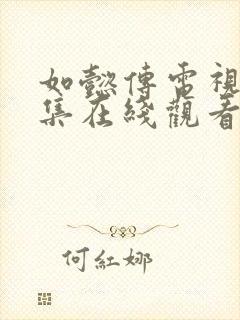 如懿傳電視
集在綫觀看
何紅娜